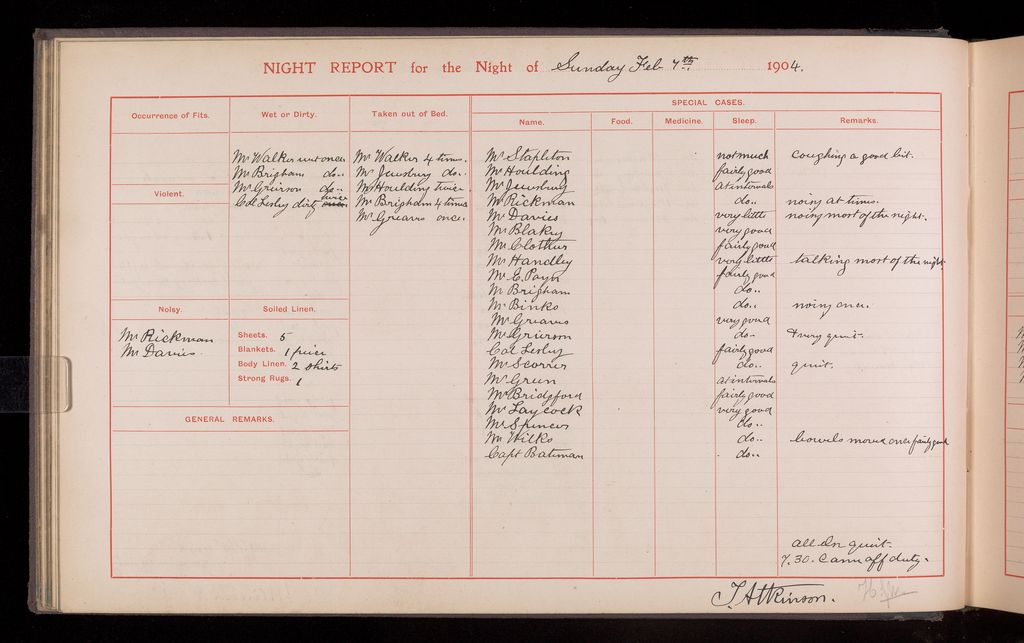 NIGHT REPORT for the Night of Sunday Feb 7th 1904.
Occurrence of Fits.
Wet or Dirty.
Mr Walker wet once
Mr Brigham do..
Mr Grierson do..
twice
Col Lesley dirty once
Taken out of Bed.
Mr Walker 4 times.
Mr Jewsbury do..
Mr Houlding twice
Mr Brigham 4 times
Mr Greaves once.
Violent.
Noisy.
Mr Rickman
Mr Davies.
Soiled Linen.
Sheets. 5
Blankets. 1 piece
Body Linen. 2 shirts
Strong Rugs. 1
GENERAL REMARKS.
SPECIAL CASES.
Name. Food. Medicine. Sleep. Remarks.
Mr Stapleton not much coughing a good bit.
Mr Houlding fairly good
Mr Jewsbury at intervals
Mr Rickman do.. noisy at times.
Mr Davies very little noisy most of the night.
Mr Blakey very good
Mr Clothier fairly good
Mr Handley very little talking most of the night
Mr E. Payn fairly good
Mr Brigham do..
Mr Binks do.. noisy once.
Mr Greaves very good
Mr Grierson do.. very quiet.
Col Lesley fairly good
Mr Scorrer do.. quiet.
Mr Green at intervals
Mr Bridgford fairly good
Mr Laycock very good
Mr Spencer do..
Mr Wilks do.. bowels moved once fairly good
Capt Bateman do..
all In quiet.
7.30. Came off duty.
J Atkinson.